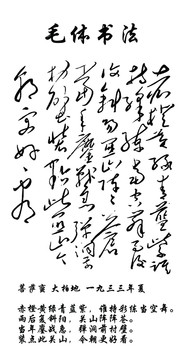 毛体书法
赤橙黄绿青蓝紫谁
持彩练当空舞雨后
复斜阳关山阵阵苍
当年鏖战急弹洞前
村壁装点此关山今
朝更好看
菩萨蛮 大柏地 一九三三年夏
赤橙黄绿青蓝紫，谁持彩练当空舞。
雨后复斜阳，关山阵阵苍。
当年鏖战急，弹洞前村壁。
装点此关山，今朝更好看。